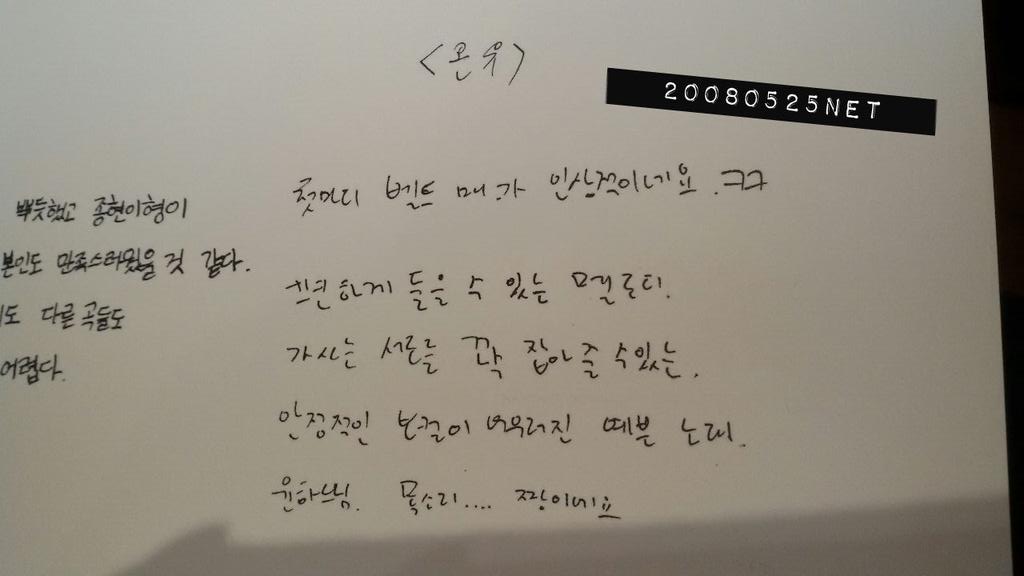 <온유>
20080525NET
첫마디 벨트 매.가 인상적이네요.ㅋㅋ
뿌듯했고 종현이형이
본인도 만족스러웠을 것 같다.
도 다른 곡들도
어렵다.
편하게 들을 수 있는 멜로디.
가사는 서로를 꽉 잡아 줄 수있는,
안정적인 보컬이 어우러진 예쁜 노래.
윤하느님. 목소리.... 짱이네요